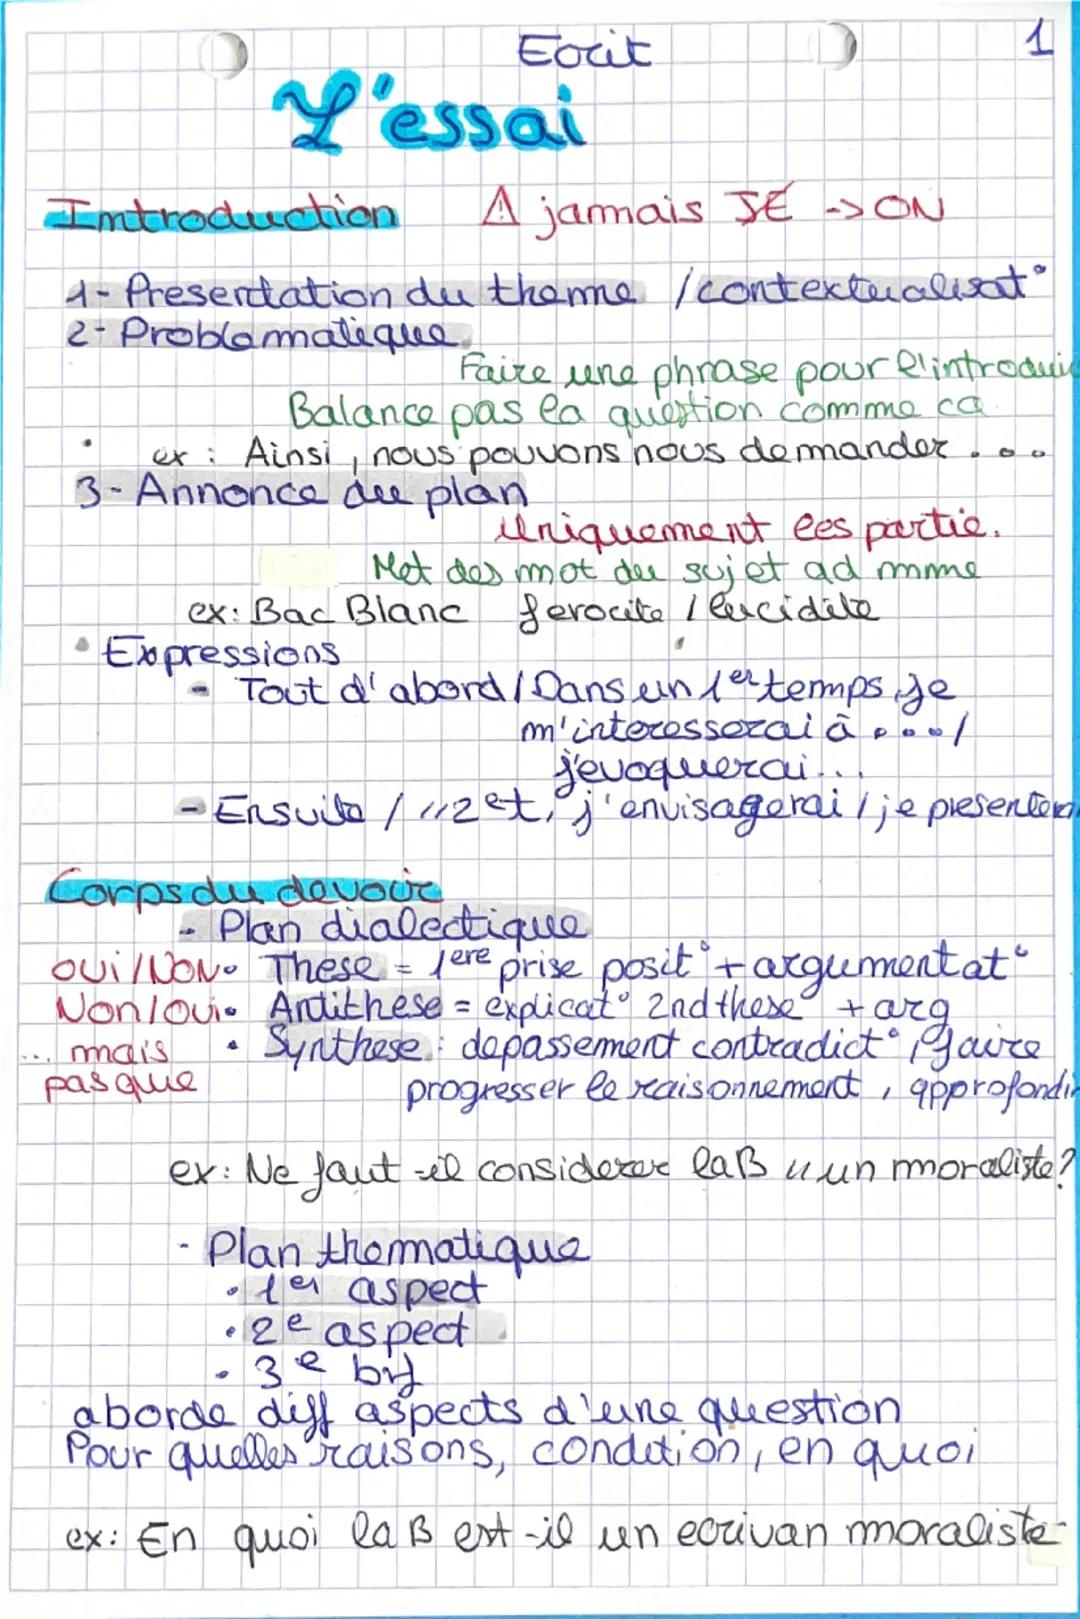 Ecrit 1
L'essai
Introduction ⚠ jamais JE -> ON
1- Presentation du theme / contextualisat°
2- Problematique
Faire une phrase pour l'introduir
Balance pas la question comme ca
ex : Ainsi, nous pouvons nous demander ...
3- Annonce du plan
Uniquement les partie.
Met des mot du sujet ad mme
ex: Bac Blanc ferocite / lucidite
• Expressions
- Tout d'abord / Dans un 1er temps, je
m'interesserai à .... /
j'evoquerai...
- Ensuite / " 2 et, j'envisagerai / je presenterai
Corps du devoir
- Plan dialectique
OUI/NON • These = 1ere prise posit° + argumentat°
Non/oui • Antithese = explicat° 2nd these + arg
... mais • Synthese : depassement contradict°, faire
pas que progresser le raisonnement, approfondir
ex: Ne faut-il considerer laB " un moraliste?
- Plan thematique
• 1er aspect
• 2e aspect
• 3e bif
aborde diff aspects d'une question
Pour quelles raisons, condition, en quoi
ex: En quoi la B est-il un ecrivan moraliste